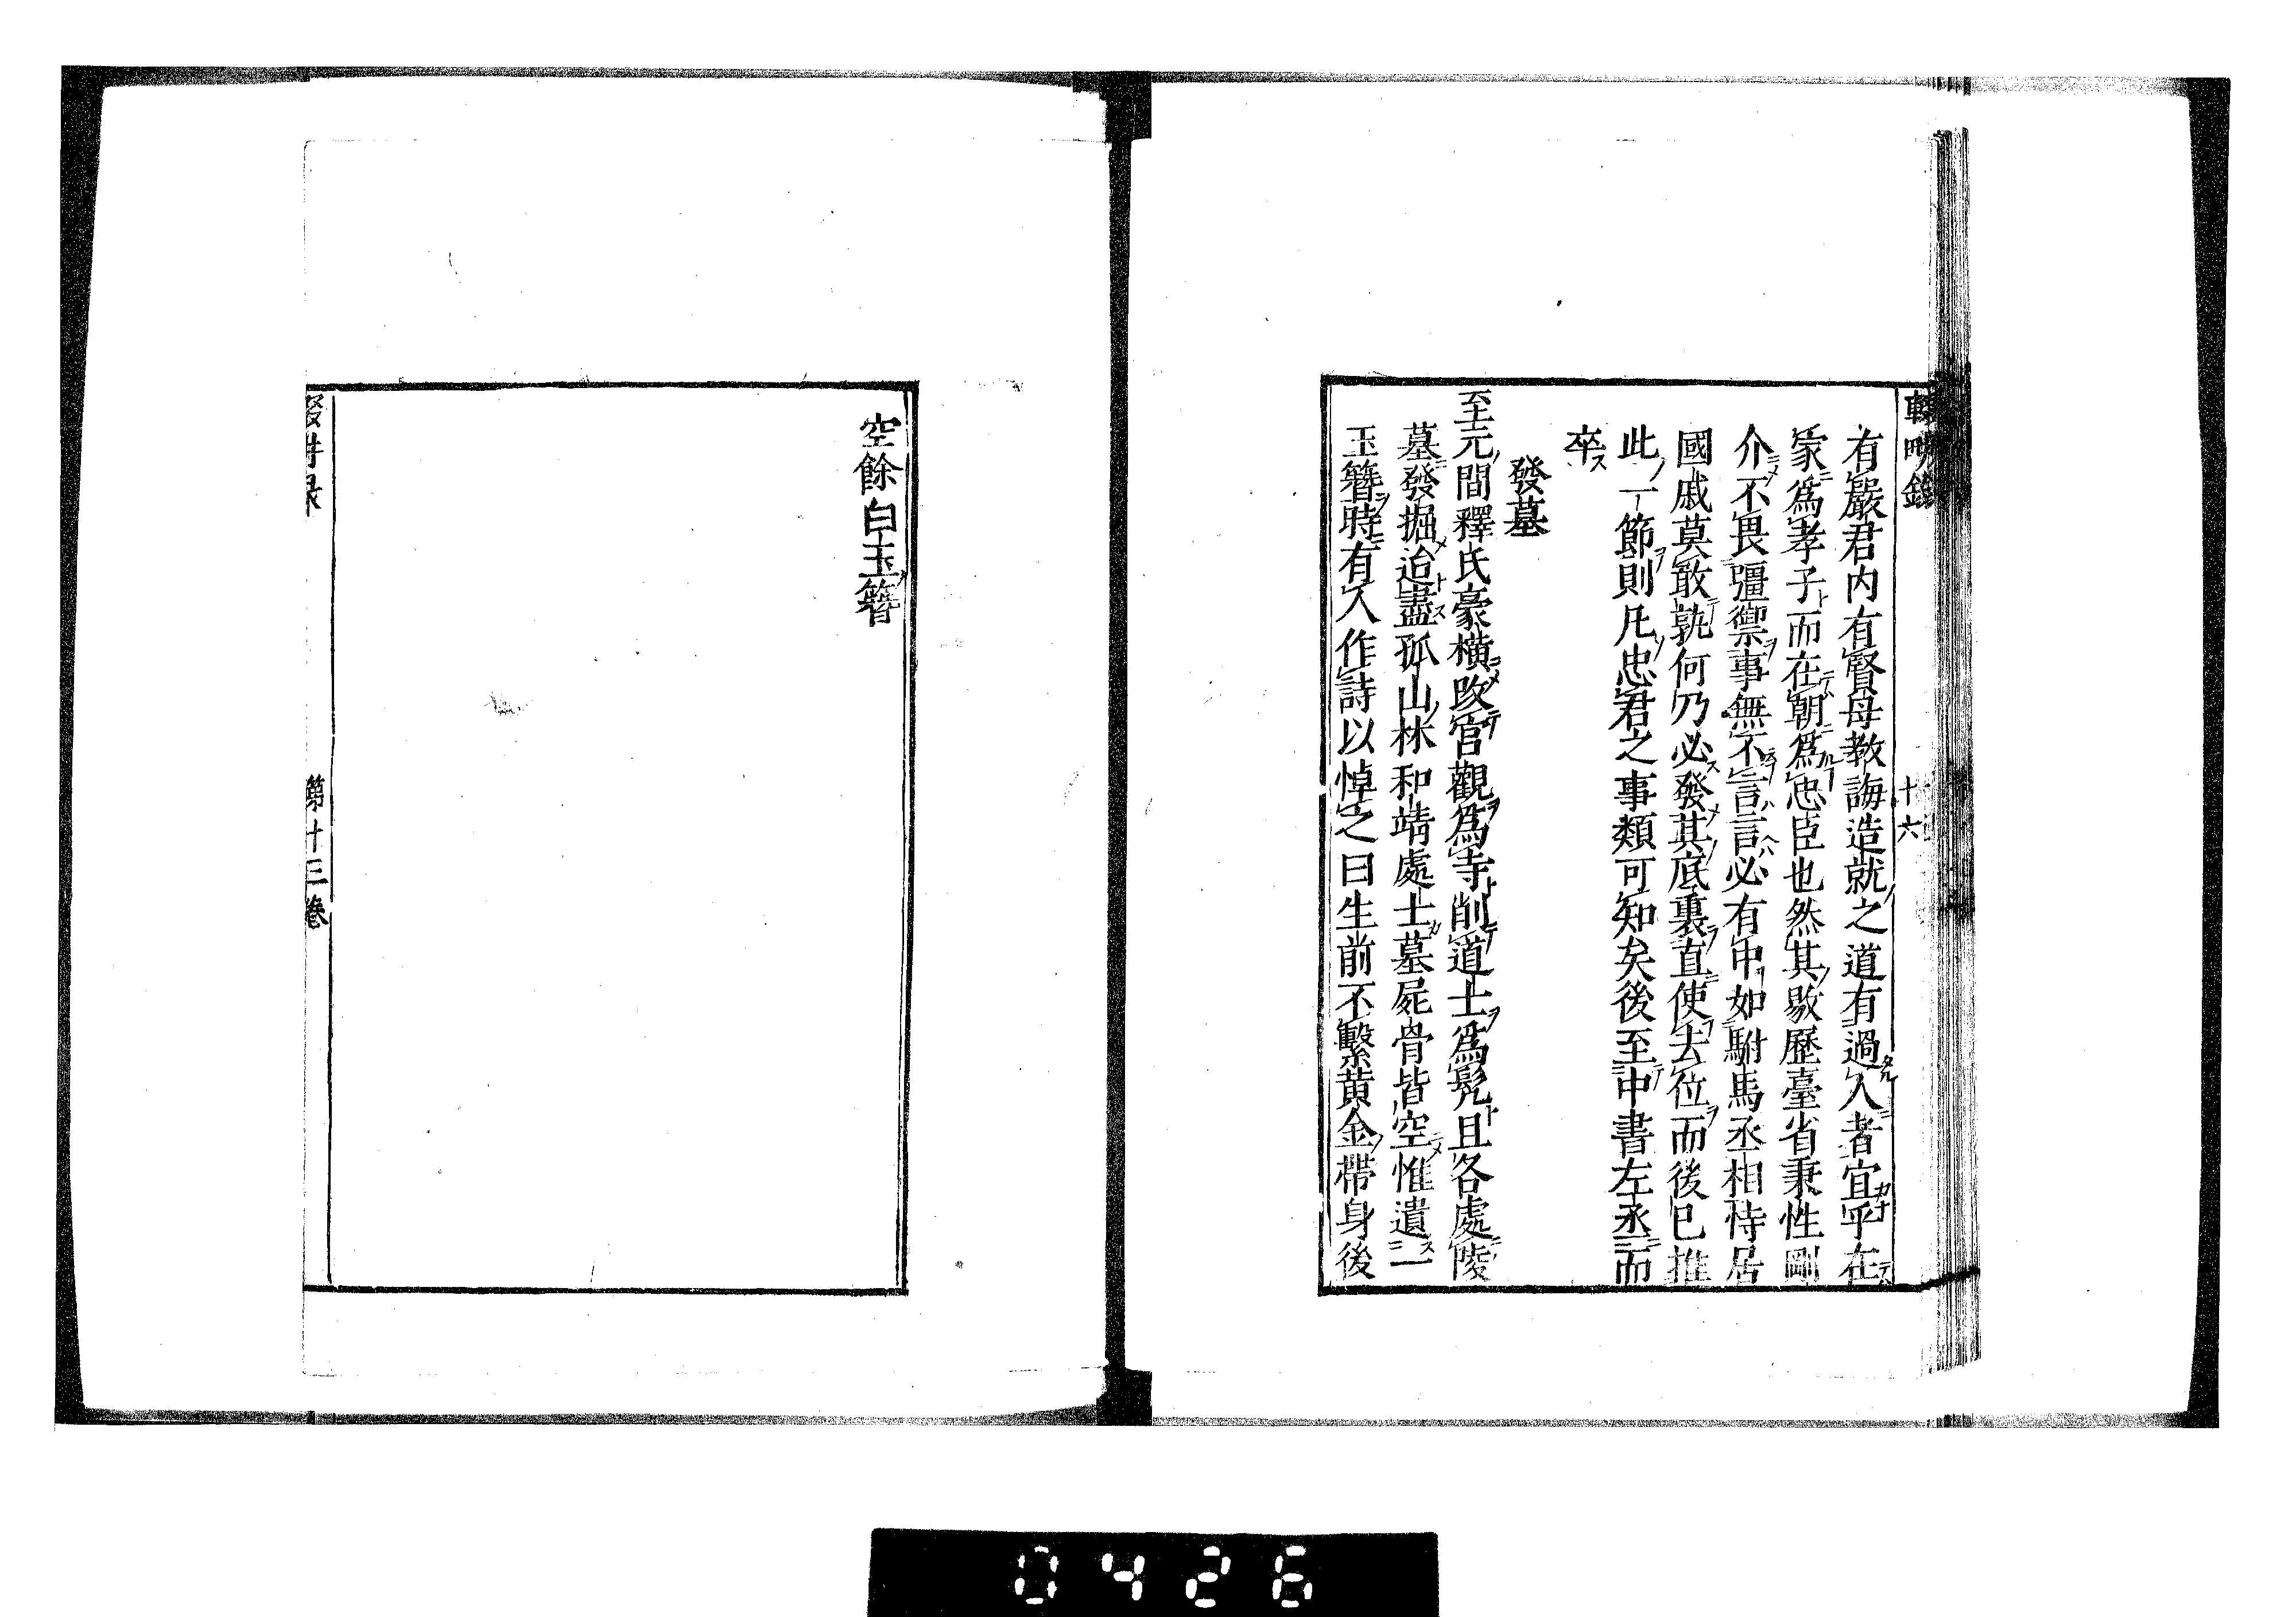 十六
有嚴君内有賢母教誨造就之道有過人者宜乎在
家爲孝子而在朝爲忠臣也然其敭歷臺省秉性剛
介不畏彊禦事無不言言必有中如駙馬丞相恃居
國戚莫敢孰何乃必發其底裏直使去位而後已推
此一節則凡忠君之事類可知矣後至中書左丞而
卒ス
發墓
至元間釋氏豪橫改宮觀爲寺削道士爲髠且各處陵
墓發掘迨盡孤山林和靖處士墓屍骨皆空惟遺一
玉簪時有人作詩以悼之曰生前不繫黄金帶身後
空餘白玉簪
第十三卷
0426